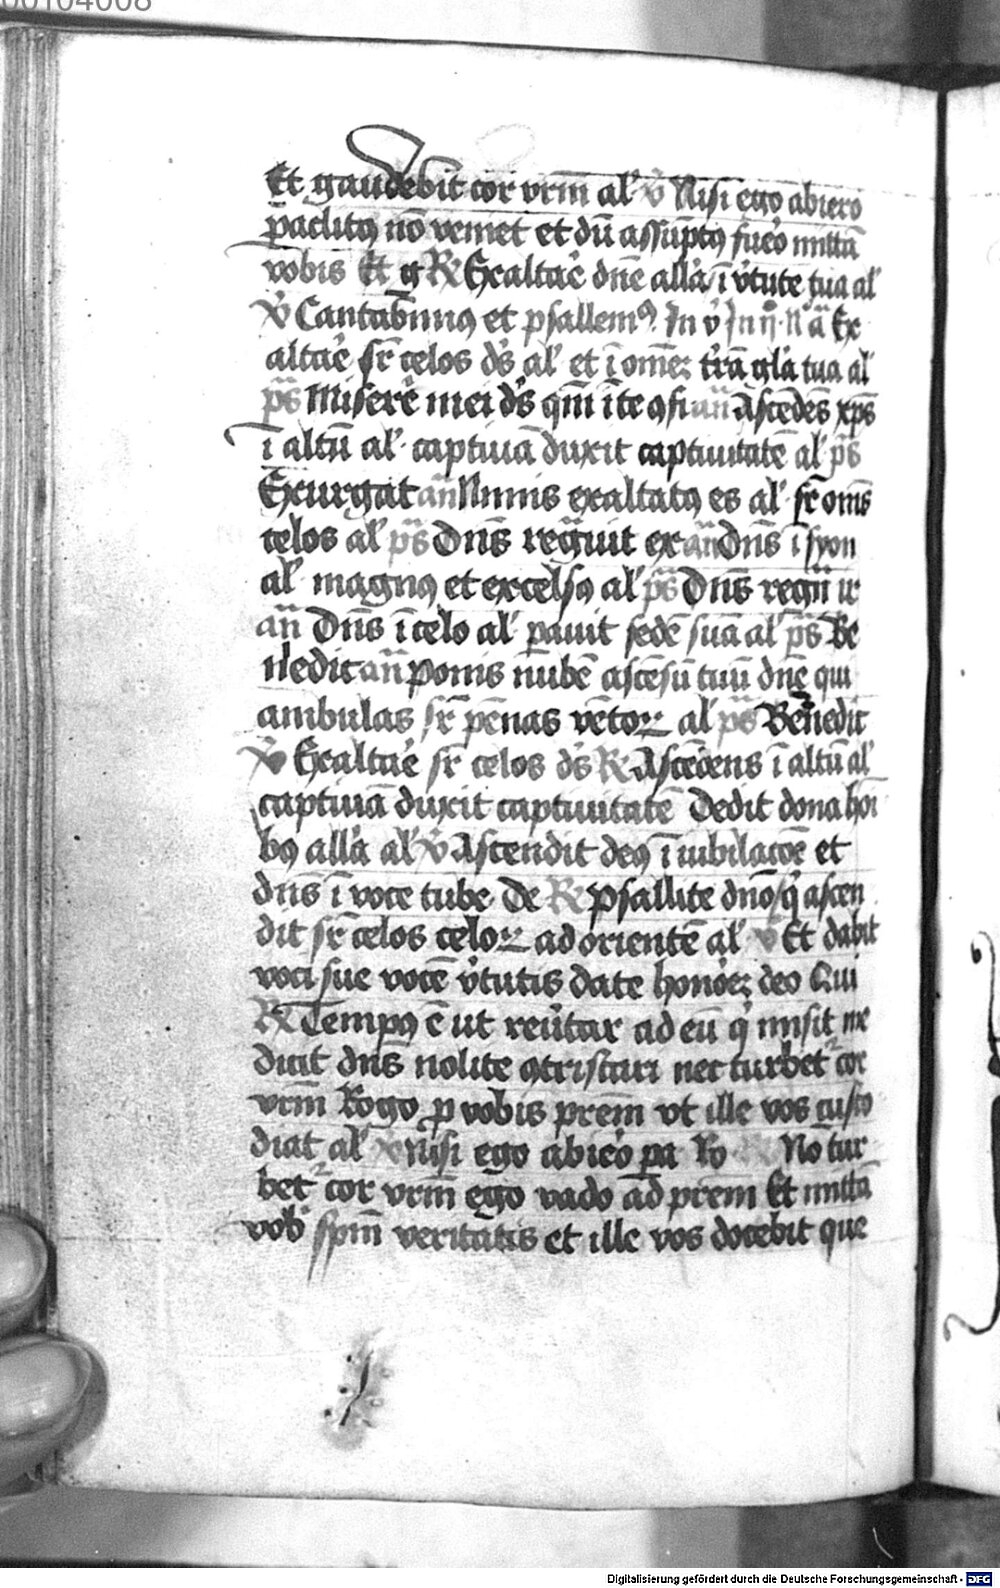 00104008
Et gaudebit cor vrm̄ al' v̄ Nisi ego abiero
paclitꝯ nō veniet et dū assūptꝯ fueo mittā
vobis Et g R̸ Exaltae dn̄e allā ī v̓tute tua al'
v̄ Cantabimꝯ et psallemꝰ. In v̄ In Ex
altae sr̄ celos ds̄ al' et ī omēꝫ tr̄ā gl̄a tua al'
ps̄ Misere mei ds̄ qm̄ ī te ꝯfi an̄ Ascēdēs xp̄s
ī altū al' captiuā duxit captiuitatē al' ps̄
Exurgat an̄ Nimis exaltatꝯ es al' sr̄ om̄s
celos al' ps̄ Dn̄s regnuit ex an̄ Dn̄s ī syon
al' magnꝯ et excelsꝯ al' ps̄ Dn̄s regn̄ ir
an̄ Dn̄s ī celo al' pauit sedē suā al' ps̄ Be
nedic an̄ Ponis nubē ascēsū tuū dn̄e qui
ambulas sr̄ pēnas vētoꝝ al' ps̄ Benedic
v̄ Exaltae sr̄ celos ds̄ R̸ Ascēdens ī altū al'
captiuā duxit captiuitatē Dedit dona hoī
bꝯ allā al' v̄ Ascendit deꝯ ī iubilacōe et
dn̄s ī voce tube De R̸ Psallite dn̄o q̓ ascen
dit sr̄ celos celoꝝ ad orientē al' v̄ Et dabit
voci sue vocē v̓tutis date honoeꝫ deo Qui
R̸ Tempꝯ ē ut reu̓tar ad eū q̓ misit me
dicit dn̄s nolite ꝯtristari nec turbet᷑ cor
vrm̄ Rogo p vobis prem̄ vt ille vos custo
diat al' v̄ Nisi ego abieo pa Ro R̸ Nō tur
bet᷑ cor vrm̄ ego vado ad prem̄ Et mittā
vob' spm̄ veritatis et ille vos docebit que
Digitalisierung gefördert durch die Deutsche Forschungsgemeinschaft - DFG